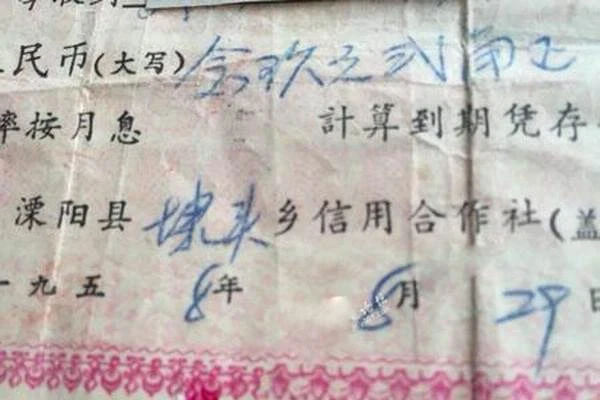 民币(大写)玖元弍角正
率按月息 計算到期凭存
溧阳县埭头乡信用合作社(盖
一九五8年 8月 29日